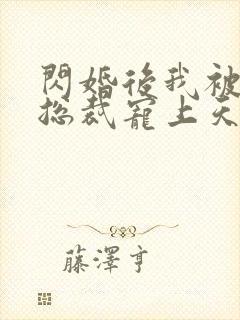 閃婚後我被
总裁寵上天
藤澤亨